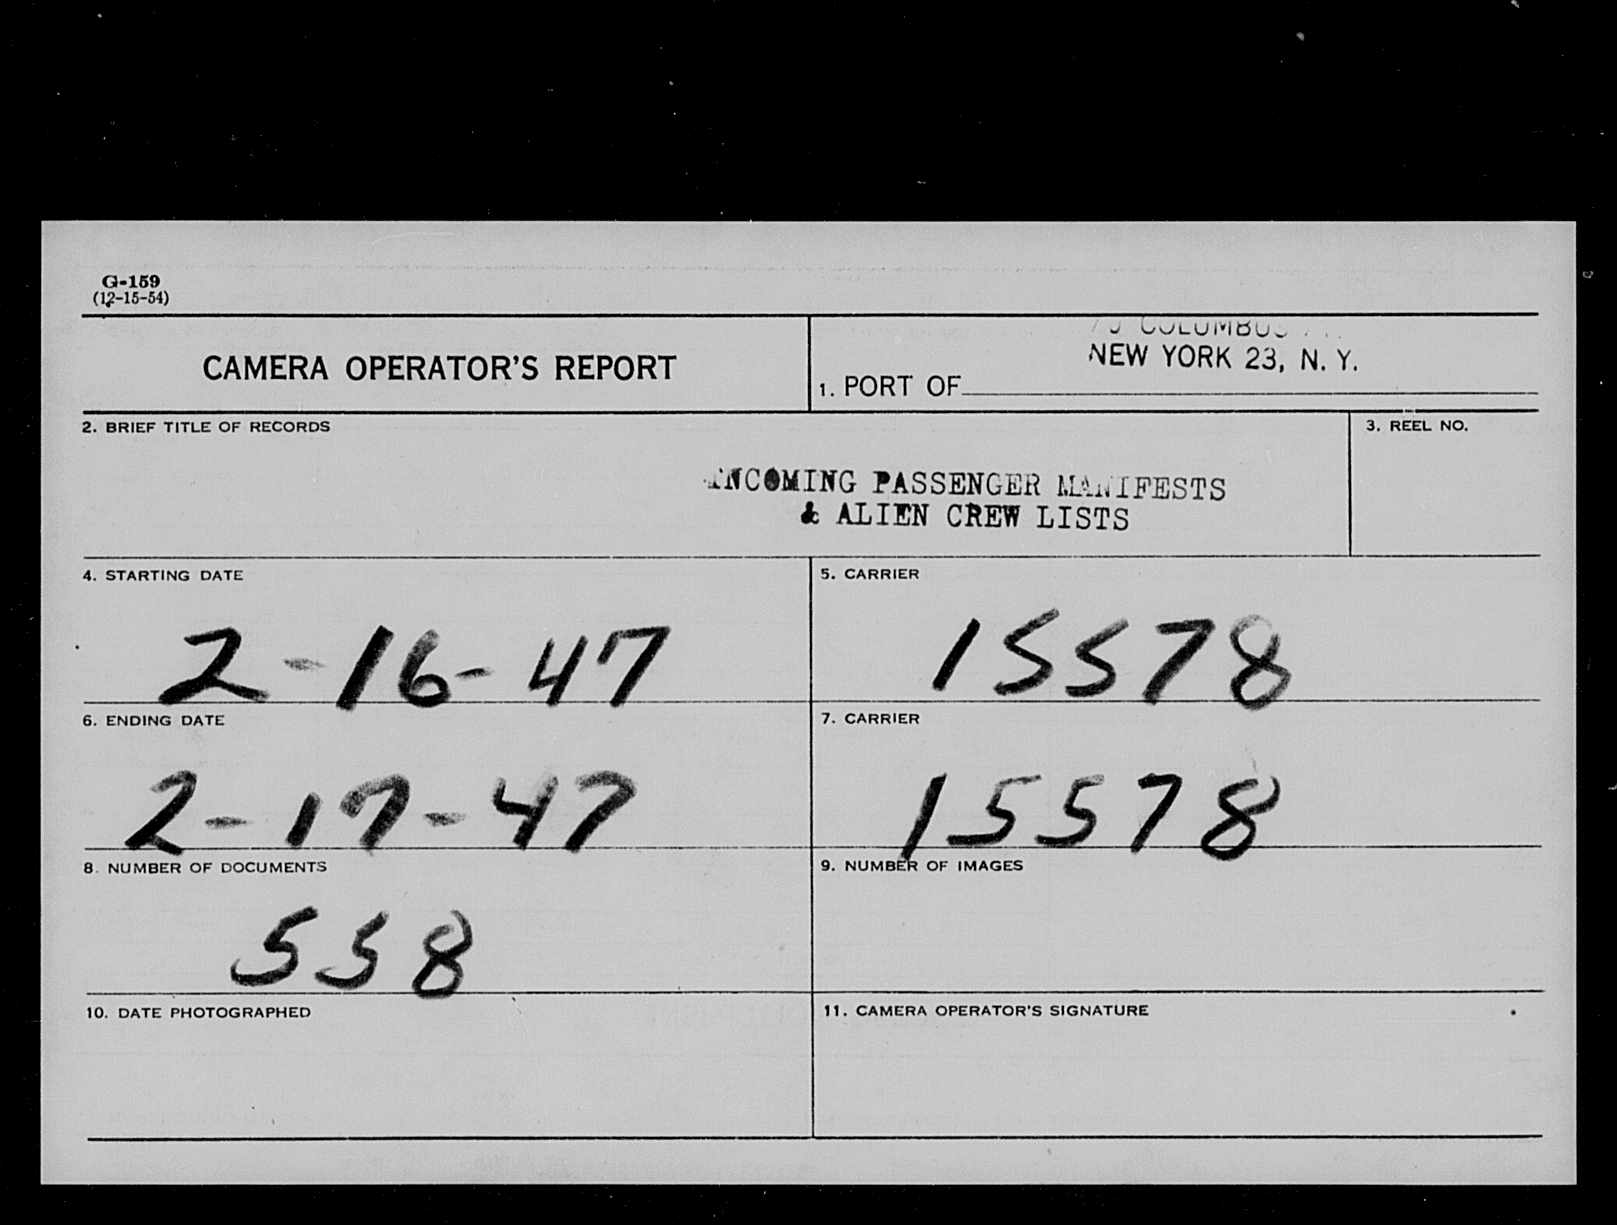 G-159
(12-15-54)
CAMERA OPERATOR'S REPORT
COLUMBUS
NEW YORK 23, N. Y.
1. PORT OF
2. BRIEF TITLE OF RECORDS
3. REEL NO.
INCOMING PASSENGER MANIFESTS
& ALIEN CREW LISTS
4. STARTING DATE
5. CARRIER
2-16-47
15578
6. ENDING DATE
7. CARRIER
2-17-47
15578
8. NUMBER OF DOCUMENTS
9. NUMBER OF IMAGES
558
10. DATE PHOTOGRAPHED
11. CAMERA OPERATOR'S SIGNATURE